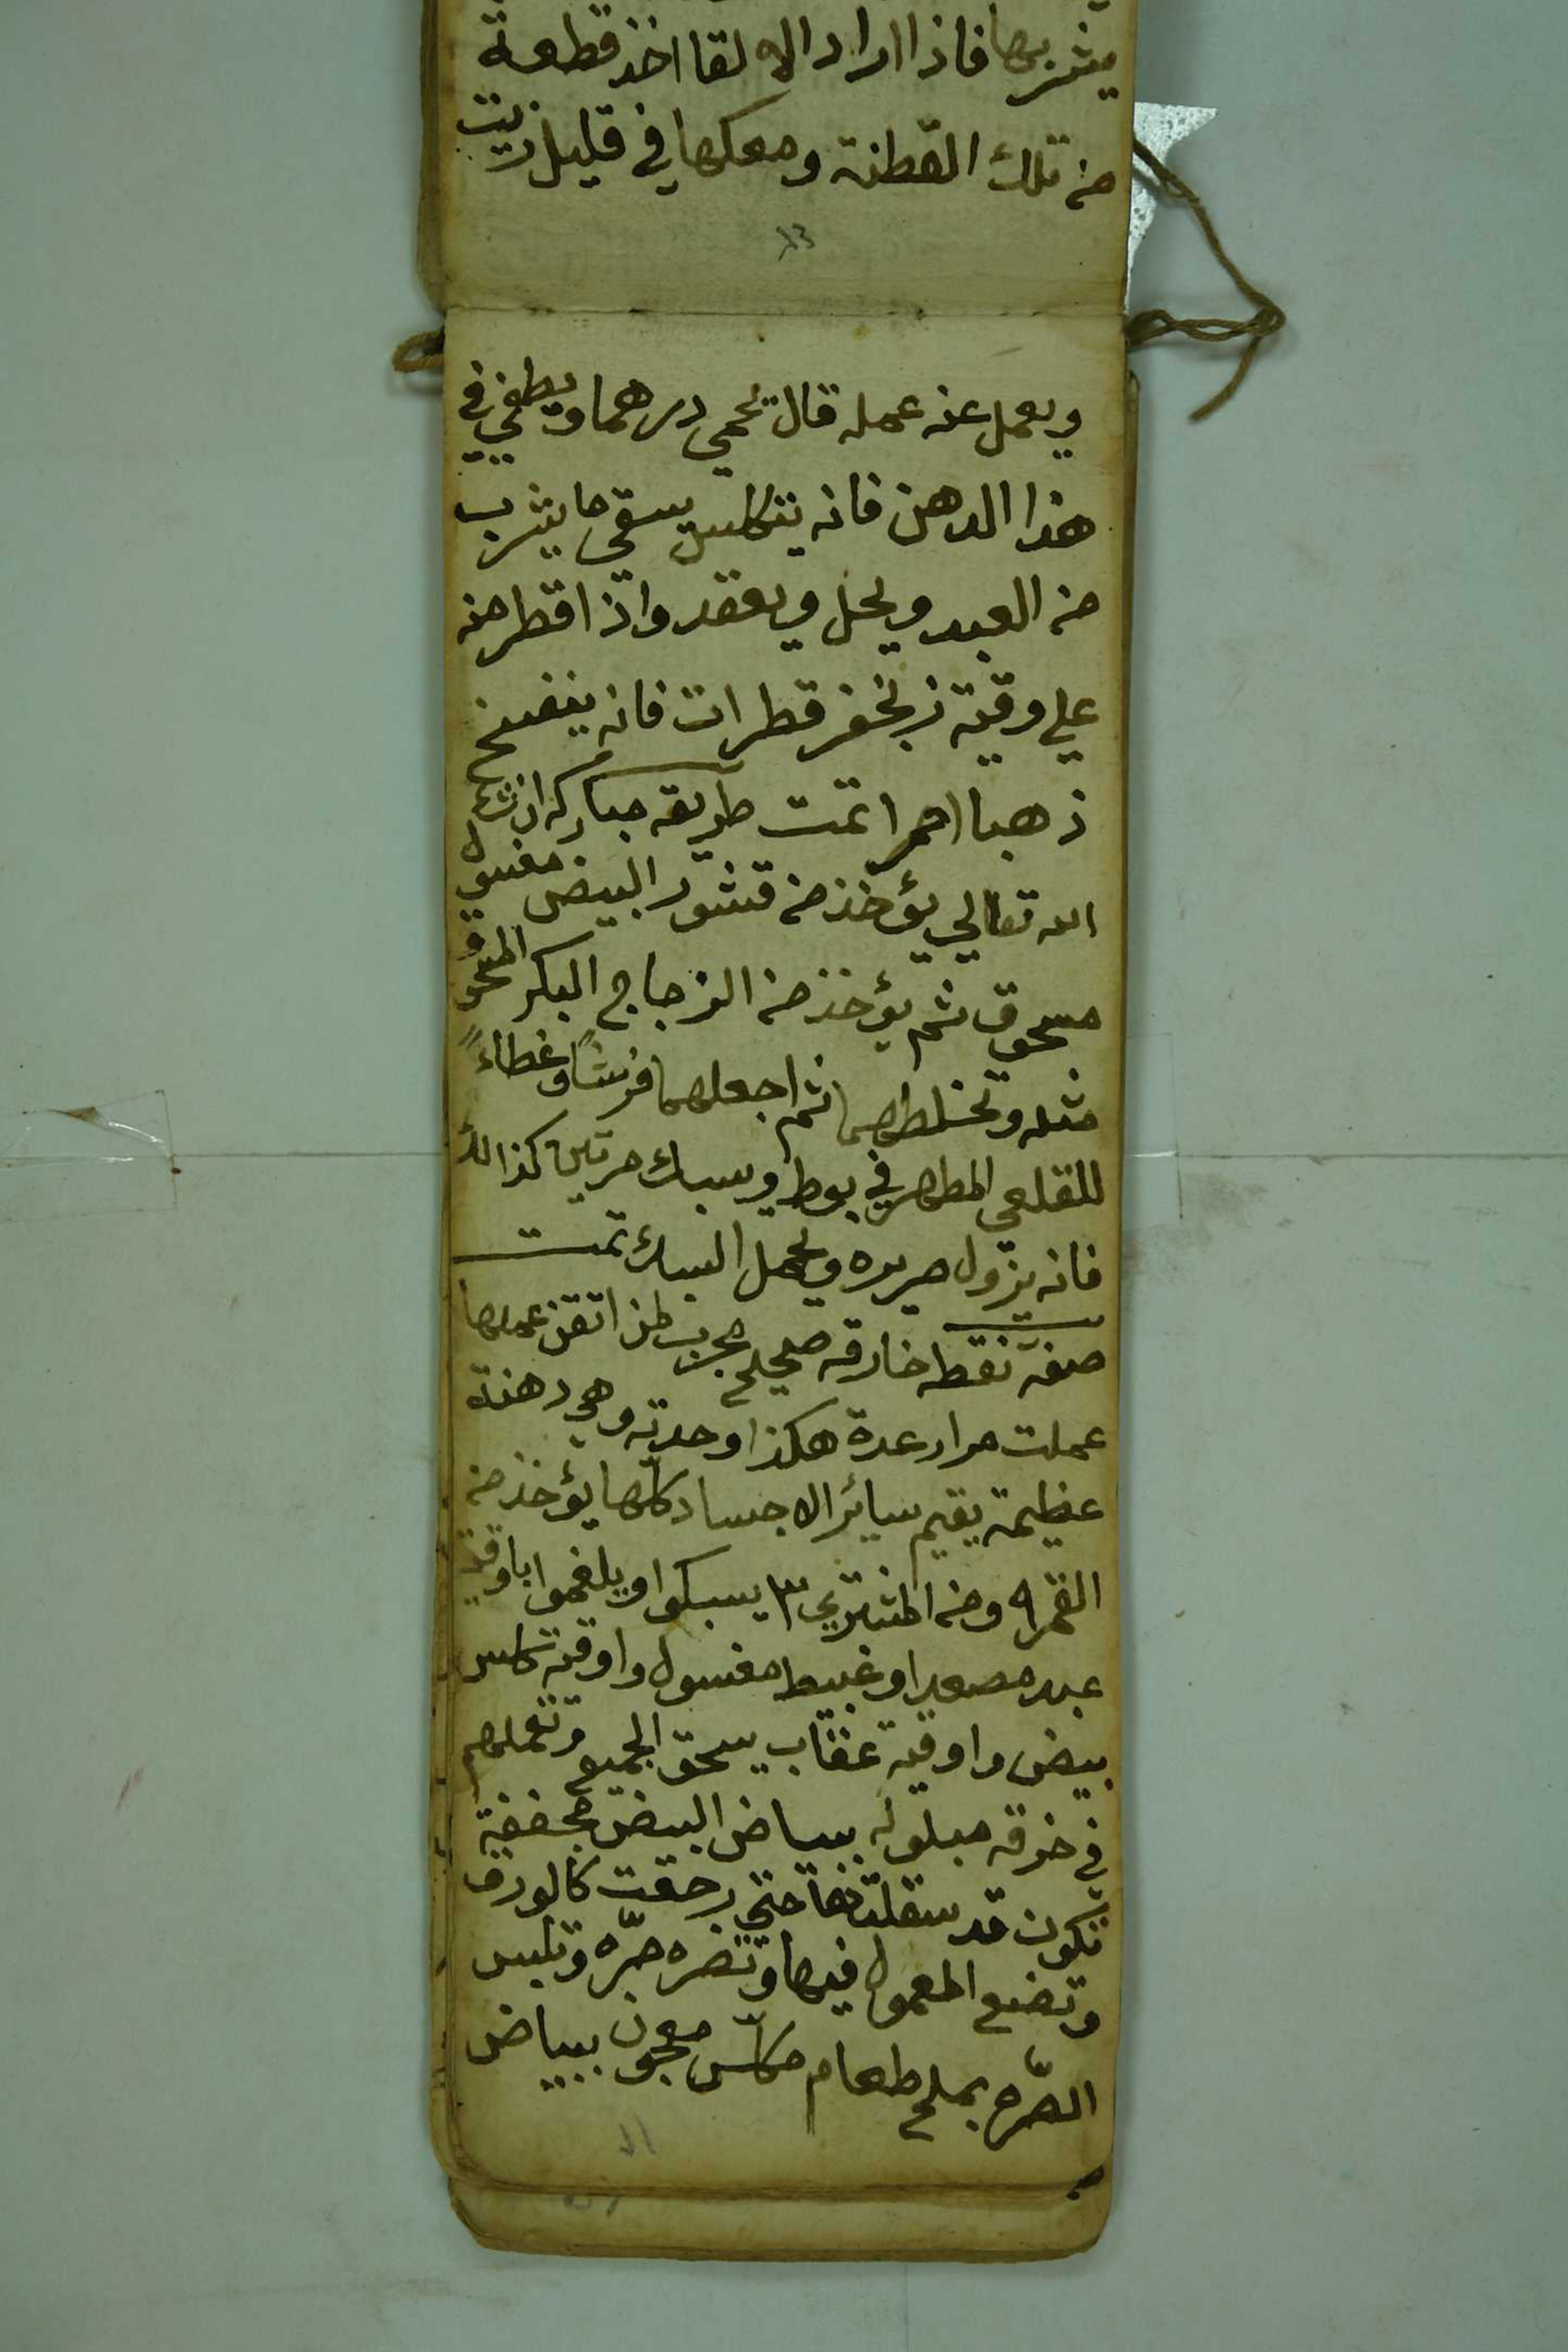 يشربها فاذا اراد الالقا اخذ قطعة
من تلك القطنة ومعكها في قليل زيت
ويعمل عنه عمله قال تحمي درهما ويطفي في
هذا الدهن فانه يتكلس يسقي ما يشرب
من العبد ويحل ويعقد واذا قطر منه
علي وقية زنجفر قطرات فانه ينفسخ
ذهبا احمرا تمت طريقه مباركه ان شاء
الله تعالي يؤخذ من قشور البيض مغسول
مسحوق ثم يؤخذ من الزجاج البكر المسحوق
مثله وتخلطهما ثم اجعلهما فرشاً وغطاءً
للقلعي المطهر في بوط وسبك مرتين كذالك
فانه يزول صريره ويحمل السبك تمت
صفة نقطه خارقه صحيح مجرب لمن اتقن عملها
عملت مرار عدة هكذا وجدته وهي دهنة
عظيمة يقيم سائر الاجساد كلها يؤخذ من
القمر ٩ ومن المشتري ٣ يسبكوا ويلغموا باوقية
عبد مصعد او غبيط مغسول واوقية كلس
بيض واوقية عقاب يسحق الجميع وتعملهم
في خرقه مبلوله ببياض البيض مجففة
تكون قد سقلتها حتي رجعت كالورق
وتضع المعمول فيها وتصره صرّه وتلبس
الصّره بملح طعام مكلّس معجون ببياض